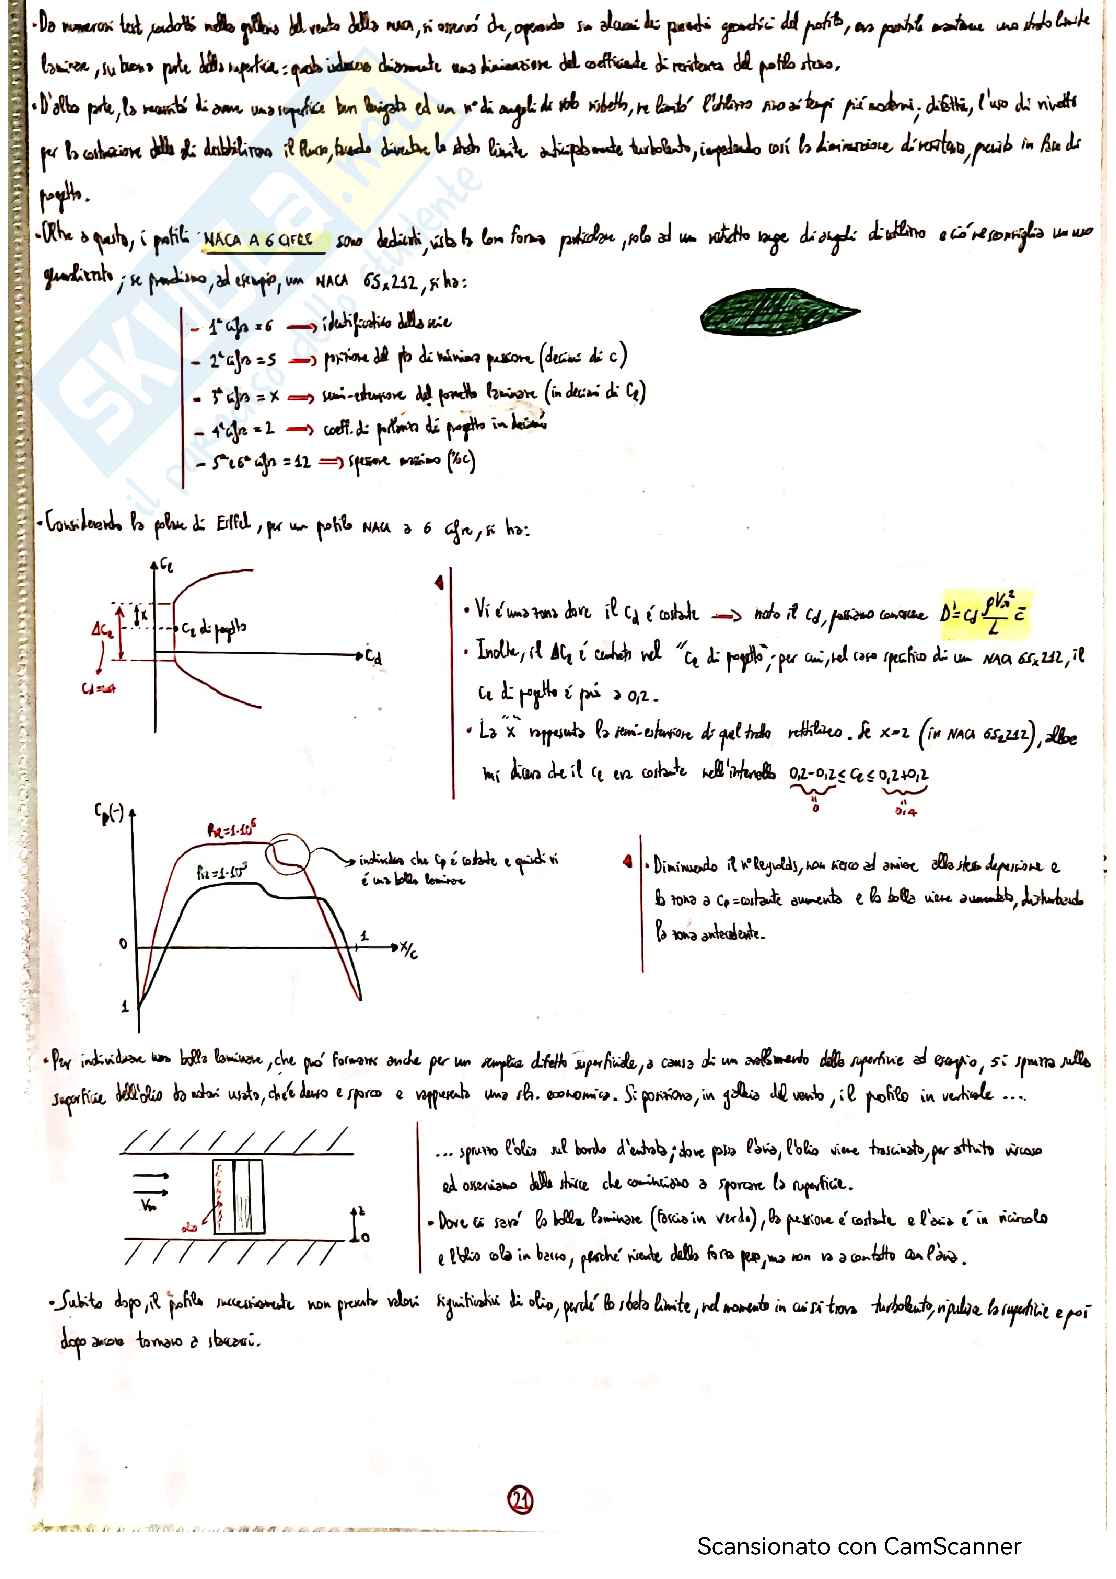 - Da numerosi test, condotti nella galleria del vento della NACA, si osservò che, operando su alcuni dei parametri geometrici del profilo, era possibile mantenere uno strato limite
laminare, su buona parte della superficie: questo induceva chiaramente una diminuzione del coefficiente di resistenza del profilo stesso.
- D'altra parte, la necessità di avere una superficie ben levigata ed un n° di angoli di volo ristretto, ne limitò l'utilizzo sino ai tempi più moderni; difatti, l'uso di rivetti
per la costruzione delle ali destabilizzava il flusso, facendo diventare lo strato limite anticipatamente turbolento, impedendo così la diminuzione di resistenza, prevista in fase di
progetto.
- Oltre a questo, i profili NACA A 6 CIFRE sono dedicati, vista la loro forma particolare, solo ad un ristretto range di angoli di utilizzo e ciò ne sconsiglia un uso
; se prendiamo, ad esempio, un NACA 65x212, si ha:
- 1ª cifra = 6 → identificativo della serie
- 2ª cifra = 5 → posizione del pto di minima pressione (decimi di c)
- 3ª cifra = x → semi-estensione del pozzetto laminare (in decimi di Cl)
- 4ª cifra = 2 → coeff. di portanza di progetto in decimi
- 5ª e 6ª cifra = 12 → spessore massimo (%c)
- Considerando la polare di Eiffel, per un profilo NACA a 6 cifre, si ha:
Cl
x
ΔCl
Cl di progetto
Cd
Cd = cost
• Vi è una zona dove il Cd è costante → noto il Cd, possiamo conoscere D' = Cd ρV∞²/2 c̄
• Inoltre, il ΔCl è centrato nel "Cl di progetto"; per cui, nel caso specifico di un NACA 65x212, il
Cl di progetto è pari a 0,2.
• La "x" rappresenta la semi-estensione di quel tratto rettilineo. Se x=2 (in NACA 65₂212), allora
mi diceva che il Cl era costante nell'intervallo 0,2-0,2 ≤ Cl ≤ 0,2+0,2
0
0,4
Cp(-)
Re=1·10⁶
Re=1·10⁵
individua che Cp è costante e quindi vi
è una bolla laminare
0
1
x/c
1
• Diminuendo il n° Reynolds, non riesco ad arrivare alla stessa depressione e
la zona a Cp=costante aumenta e la bolla viene aumentata, disturbando
la zona antecedente.
- Per individuare una bolla laminare, che può formarsi anche per un semplice difetto superficiale, a causa di un avallamento della superficie ad esempio, si spruzza sulla
superficie dell'olio da motori usato, che è denso e sporco e rappresenta una slz. economica. Si posiziona, in galleria del vento, il profilo in verticale ...
V∞
olio
z
0
... spruzzo l'olio sul bordo d'entrata; dove passa l'aria, l'olio viene trascinato, per attrito viscoso
ed osserviamo delle strisce che cominciano a sporcare la superficie.
- Dove ci sarà la bolla laminare (fascia in verde), la pressione è costante e l'aria è in ricircolo
e l'olio cola in basso, perché risente della forza peso, ma non va a contatto con l'aria.
- Subito dopo, il profilo successivamente non presenta valori significativi di olio, perché lo strato limite, nel momento in cui si trova turbolento, ripulisce la superficie e poi
dopo ancora tornano a staccarsi.
21
SKUOLA.net
il paradiso dello studente
Scansionato con CamScanner